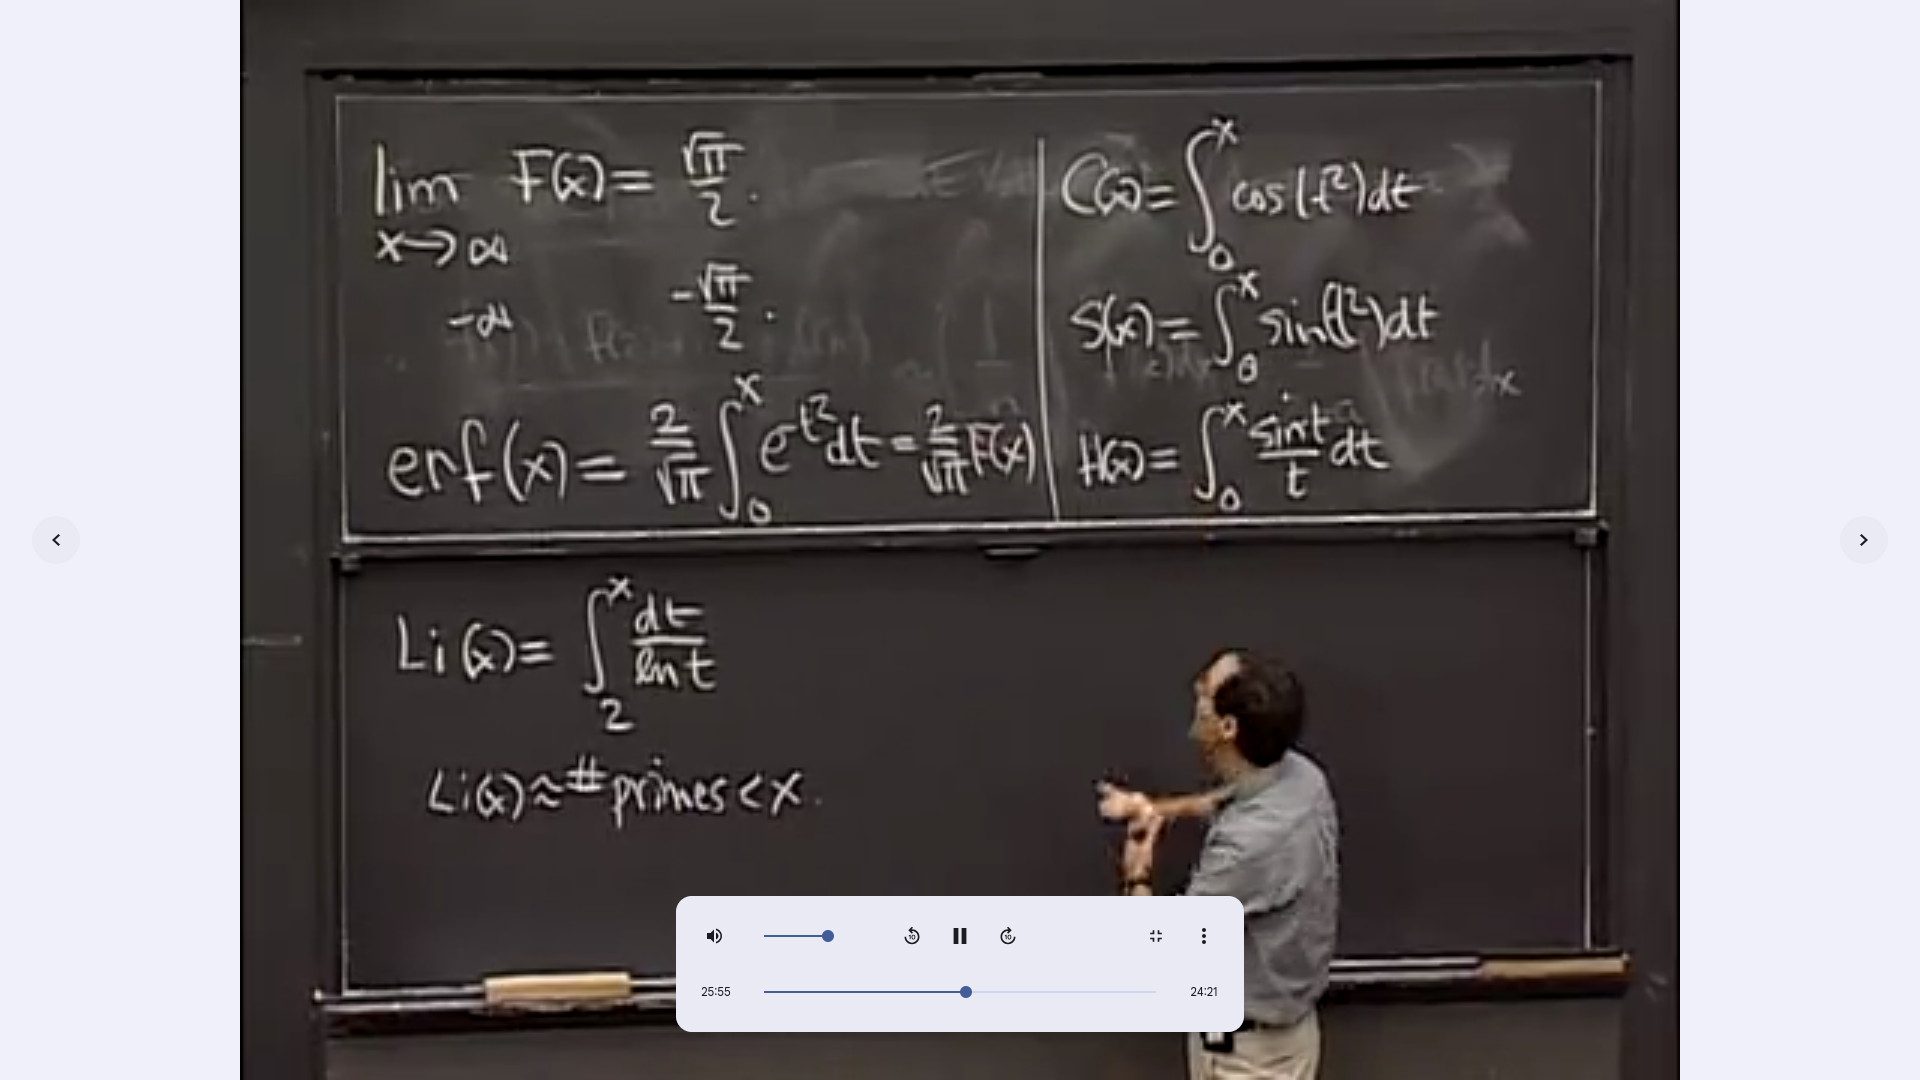 lim F(x) = √π/2.
x→∞
-∞ -√π/2.
erf(x) = 2/√π ∫₀ˣ e^t² dt = 2/√π F(x)
C(x) = ∫₀ˣ cos(t²)dt
S(x) = ∫₀ˣ sin(t²)dt
H(x) = ∫₀ˣ sin t/t dt
Li(x) = ∫₂ˣ dt/ln t
Li(x) ≈ # primes < x.
10
10
25:55
24:21